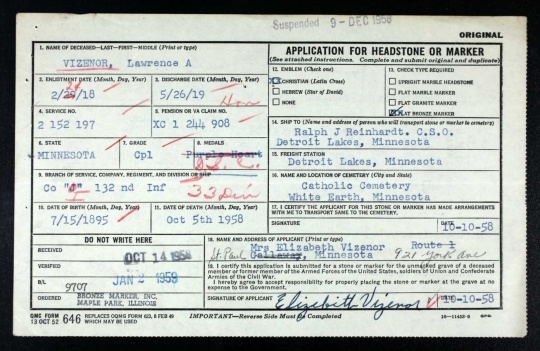 Suspended 9-DEC 1958
ORIGINAL
1. NAME OF DECEASED—LAST—FIRST—MIDDLE (Print or type)
VIZENOR, Lawrence A
APPLICATION FOR HEADSTONE OR MARKER
(See attached instructions. Complete and submit original and duplicate)
2. ENLISTMENT DATE (Month, Day, Year)
3. DISCHARGE DATE (Month, Day, Year)
5/26/19
Hon
12. EMBLEM (Check one)
CHRISTIAN (Latin Cross)
HEBREW (Star of David)
NONE
13. CHECK TYPE REQUIRED
UPRIGHT MARBLE HEADSTONE
FLAT MARBLE MARKER
FLAT GRANITE MARKER
FLAT BRONZE MARKER
4. SERVICE NO.
2 152 197
5. PENSION OR VA CLAIM NO.
XC 1 244 908
14. SHIP TO (Name and address of person who will transport stone or marker to cemetery)
Ralph J Reinhardt. C.S.O.
Detroit Lakes, Minnesota
6. STATE
MINNESOTA
7. GRADE
Cpl
8. MEDALS
Purple Heart
15. FREIGHT STATION
Detroit Lakes, Minnesota
9. BRANCH OF SERVICE, COMPANY, REGIMENT, AND DIVISION OR SHIP
132 nd Inf
33 Div
16. NAME AND LOCATION OF CEMETERY (City and State)
Catholic Cemetery
White Earth, Minnesota
10. DATE OF BIRTH (Month, Day, Year)
7/15/1895
11. DATE OF DEATH (Month, Day, Year)
Oct 5th 1958
17. I CERTIFY THE APPLICANT FOR THIS STONE OR MARKER HAS MADE ARRANGEMENTS WITH ME TO TRANSPORT SAME TO THE CEMETERY.
SIGNATURE
10-10-58
DO NOT WRITE HERE
RECEIVED
OCT 14 1958
VERIFIED
JAN 2 1959
B/L
9707
ORDERED
BRONZE MARKER, INC.
MAPLE PARK, ILLINOIS
18. NAME AND ADDRESS OF APPLICANT (Print or type)
Mrs Elizabeth Vizenor Route 1
St. Paul Callaway, Minnesota 921 York Ave
I certify this application is submitted for a stone or marker for the unmarked grave of a deceased member or former member of the Armed Forces of the United States, soldiers of Union and Confederate Armies of the Civil War.
I hereby agree to accept responsibility for properly placing the stone or marker at the grave at no expense to the Government.
SIGNATURE OF APPLICANT
Elizabeth Vizenor
10-10-58
QMC FORM
13 OCT 52 646
REPLACES QMC FORM 623, 8 FEB 49
WHICH MAY BE USED.
IMPORTANT—Reverse Side Must be Completed